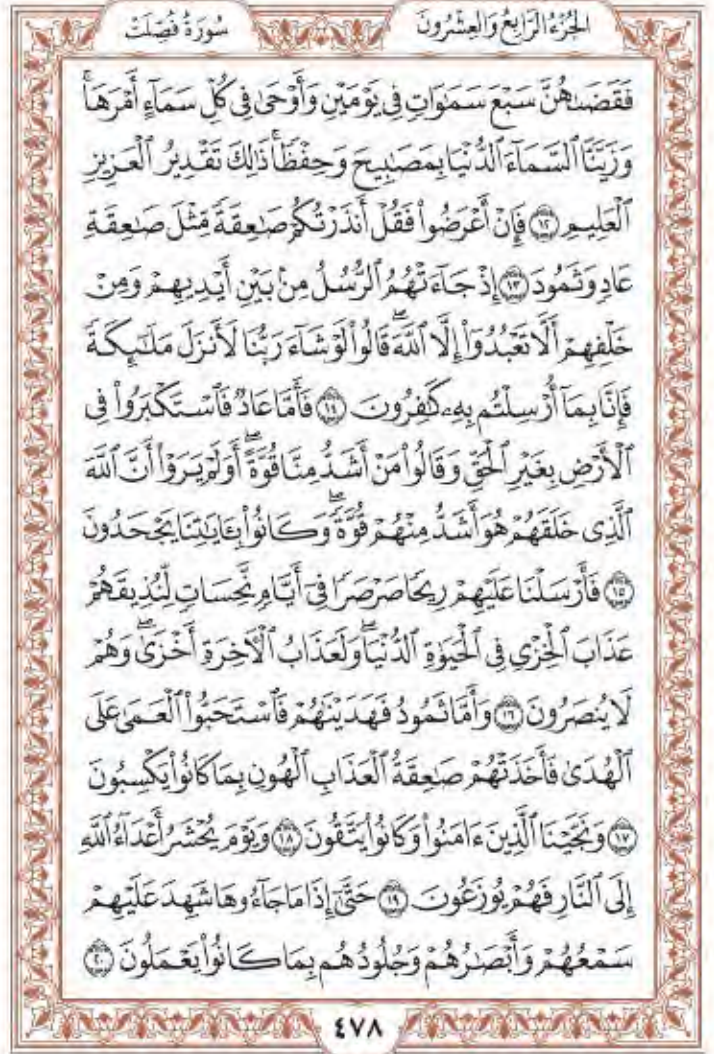 الجُزْءُ الرَّابِعُ وَالعِشْرُونَ سُورَةُ فُصِّلَتْ
فَقَضَىٰهُنَّ سَبْعَ سَمَٰوَاتٍ فِي يَوْمَيْنِ وَأَوْحَىٰ فِي كُلِّ سَمَآءٍ أَمْرَهَاۚ
وَزَيَّنَّا ٱلسَّمَآءَ ٱلدُّنْيَا بِمَصَٰبِيحَ وَحِفْظٗاۚ ذَٰلِكَ تَقْدِيرُ ٱلْعَزِيزِ
ٱلْعَلِيمِ ١٢ فَإِنْ أَعْرَضُواْ فَقُلْ أَنذَرْتُكُمْ صَٰعِقَةٗ مِّثْلَ صَٰعِقَةِ
عَادٖ وَثَمُودَ ١٣ إِذْ جَآءَتْهُمُ ٱلرُّسُلُ مِنۢ بَيْنِ أَيْدِيهِمْ وَمِنْ
خَلْفِهِمْ أَلَّا تَعْبُدُوٓاْ إِلَّا ٱللَّهَۖ قَالُواْ لَوْ شَآءَ رَبُّنَا لَأَنزَلَ مَلَٰٓئِكَةٗ
فَإِنَّا بِمَآ أُرْسِلْتُم بِهِۦ كَٰفِرُونَ ١٤ فَأَمَّا عَادٞ فَٱسْتَكْبَرُواْ فِي
ٱلْأَرْضِ بِغَيْرِ ٱلْحَقِّ وَقَالُواْ مَنْ أَشَدُّ مِنَّا قُوَّةًۖ أَوَلَمْ يَرَوْاْ أَنَّ ٱللَّهَ
ٱلَّذِي خَلَقَهُمْ هُوَ أَشَدُّ مِنْهُمْ قُوَّةٗۖ وَكَانُواْ بِـَٔايَٰتِنَا يَجْحَدُونَ
١٥ فَأَرْسَلْنَا عَلَيْهِمْ رِيحٗا صَرْصَرٗا فِيٓ أَيَّامٖ نَّحِسَاتٖ لِّنُذِيقَهُمْ
عَذَابَ ٱلْخِزْيِ فِي ٱلْحَيَوٰةِ ٱلدُّنْيَاۖ وَلَعَذَابُ ٱلْأٓخِرَةِ أَخْزَىٰۖ وَهُمْ
لَا يُنصَرُونَ ١٦ وَأَمَّا ثَمُودُ فَهَدَيْنَٰهُمْ فَٱسْتَحَبُّواْ ٱلْعَمَىٰ عَلَى
ٱلْهُدَىٰ فَأَخَذَتْهُمْ صَٰعِقَةُ ٱلْعَذَابِ ٱلْهُونِ بِمَا كَانُواْ يَكْسِبُونَ
١٧ وَنَجَّيْنَا ٱلَّذِينَ ءَامَنُواْ وَكَانُواْ يَتَّقُونَ ١٨ وَيَوْمَ يُحْشَرُ أَعْدَآءُ ٱللَّهِ
إِلَى ٱلنَّارِ فَهُمْ يُوزَعُونَ ١٩ حَتَّىٰٓ إِذَا مَا جَآءُوهَا شَهِدَ عَلَيْهِمْ
سَمْعُهُمْ وَأَبْصَٰرُهُمْ وَجُلُودُهُم بِمَا كَانُواْ يَعْمَلُونَ ٢٠
٤٧٨